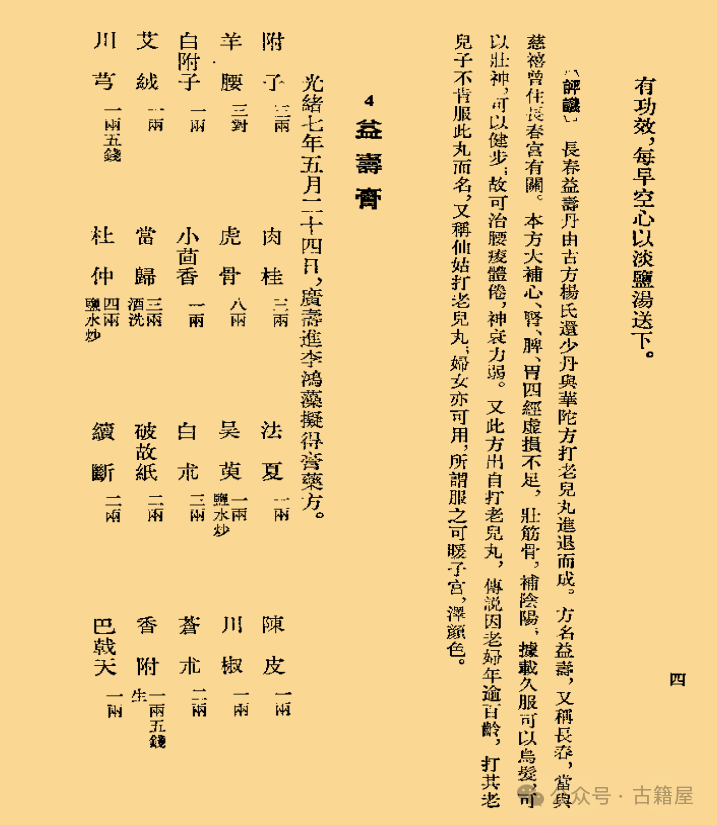 有功效，每早空心以淡鹽湯送下。
〔評議〕長春益壽丹由古方楊氏還少丹與華陀方打老兒丸進退而成。方名益壽，又稱長春，當與
慈禧曾住長春宮有關。本方大補心、腎、脾、胃四經虛損不足，壯筋骨，補陰陽，據載久服可以烏髮，可
以壯神，可以健步，故可治腰痠體倦，神衰力弱。又此方出自打老兒丸，傳說因老婦年逾百齡，打其老
兒子不肯服此丸而名，又稱仙姑打老兒丸，婦女亦可用，所謂服之可暖子宮，澤顏色。
4 益壽膏
光緒七年五月二十四日，廣壽進李鴻藻擬得膏藥方。
附子 二兩 肉桂 二兩 法夏 一兩 陳皮 一兩
羊腰 三對 虎骨 八兩 吳萸 一兩 鹽水炒 川椒 一兩
白附子 一兩 小茴香 一兩 白朮 三兩 蒼朮 二兩
艾絨 一兩 當歸 三兩 酒洗 破故紙 二兩 香附 一兩五錢 生
川芎 一兩五錢 杜仲 四兩 鹽水炒 續斷 二兩 巴戟天 一兩
四
公众号·古籍屋